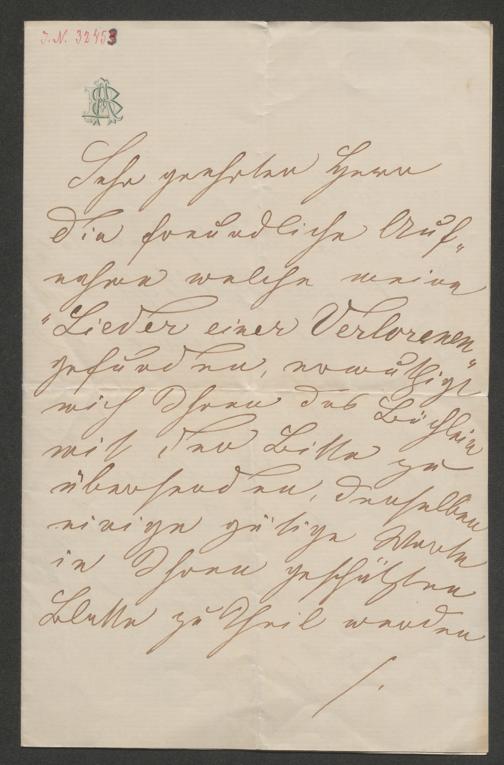 I. N. 32453
Sehr geehrter Herr
Die freundliche Auf-
nahme welche meine
"Lieder einer Verlorenen"
gefunden, ermuthigt
mich Ihnen das Büchlein
mit der Bitte zu
übersenden, demselben
einige gütige Worte
in Ihrem geschätzten
Blatte zu Theil werden
/.